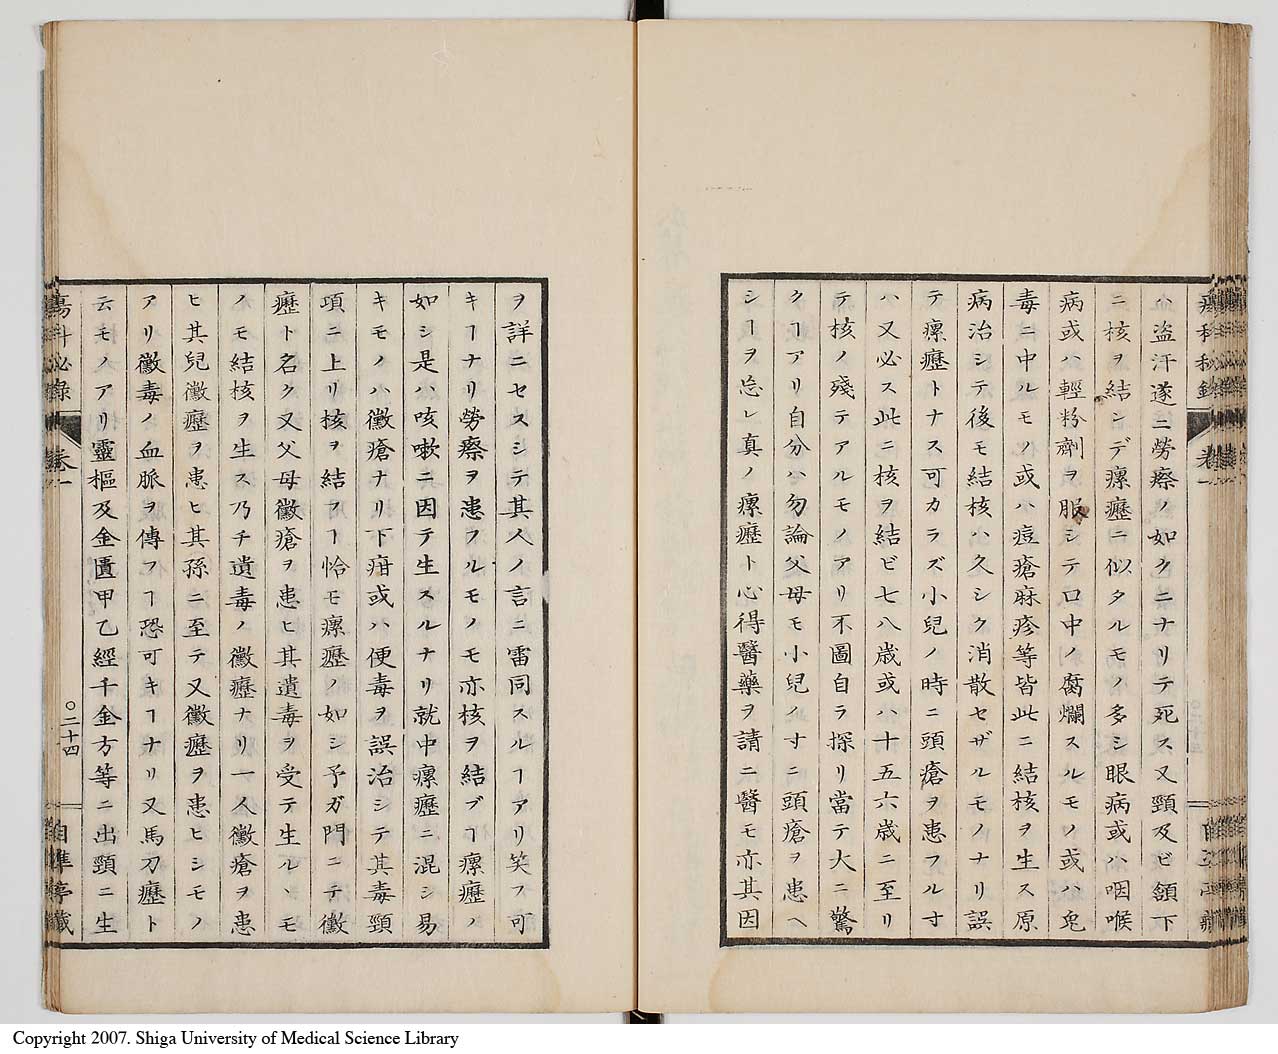 血盗汗遂ニ勞瘵ノ如クニナリテ死ス又頸及ビ頷下
ニ核ヲ結ンデ瘰癧ニ似タルモノ多シ眼病或ハ咽喉
病或ハ輕粉劑ヲ服シテ口中ノ腐爛スルモノ或ハ兔
毒ニ中ルモノ或ハ痘瘡麻疹等皆此ニ結核ヲ生ス原
病治シテ後モ結核ハ久シク消散セザルモノナリ誤
テ瘰癧トナス可カラズ小兒ノ時ニ頭瘡ヲ患フル寸
ハ又必ス此ニ核ヲ結ビ七八歳或ハ十五六歳ニ至リ
テ核ノ殘テアルモノアリ不圖自ラ探リ當テ大ニ驚
クヿアリ自分ハ勿論父母モ小兒ノ寸ニ頭瘡ヲ患ヘ
シヿヲ忘レ真ノ瘰癧ト心得醫藥ヲ請ニ醫モ亦其因
ヲ詳ニセスシテ其人ノ言ニ雷同スルヿアリ笑フ可
キヿナリ勞瘵ヲ患フルモノモ亦核ヲ結ブヿ瘰癧ノ
如シ是ハ咳嗽ニ因テ生スルナリ就中瘰癧ニ混シ易
キモノハ黴瘡ナリ下疳或ハ便毒ヲ誤治シテ其毒頸
項ニ上リ核ヲ結フヿ恰モ瘰癧ノ如シ予ガ門ニテ黴
癧ト名ク又父母黴瘡ヲ患ヒ其遺毒ヲ受テ生ルヽモ
ノモ結核ヲ生ス乃チ遺毒ノ黴癧ナリ一人黴瘡ヲ患
ヒ其兒黴癧ヲ患ヒ其孫ニ至テ又黴癧ヲ患ヒシモノ
アリ黴毒ノ血脈ヲ傳フヿ恐可キヿナリ又馬刀癧ト
云モノアリ靈樞及金匱甲乙經千金方等ニ出頸ニ生
瘍科秘錄 卷一 〇二十四 自準亭藏
Copyright 2007. Shiga University of Medical Science Library